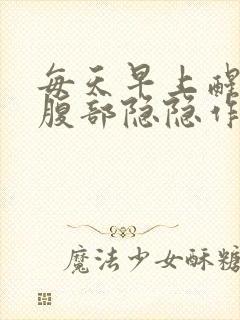 每天早上醒
腹部隐隐作
魔法少女酥糖